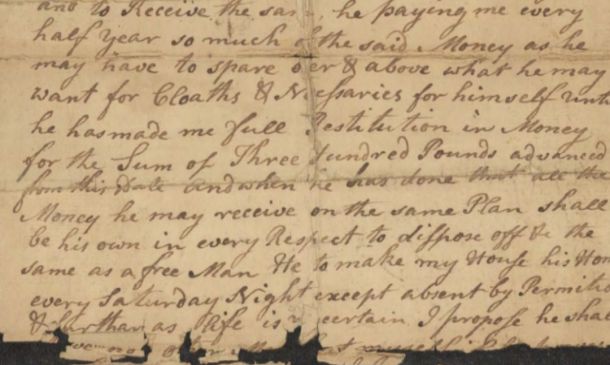 and to Receive the same, he paying me every
half year so much of the said Money as he
may have to spare over & above what he may
want for Cloaths & Necessaries for himself until
he has made me full Restitution in Money
for the Sum of Three Hundred Pounds advanced
from this Date and when he has done that all the
Money he may receive on the same Plan shall
be his own in every Respect to dispose off & the
same as a free Man He to make my House his Home
every Saturday Night except absent by Permitio
& farther as life is uncertain I propose he shall
have no other